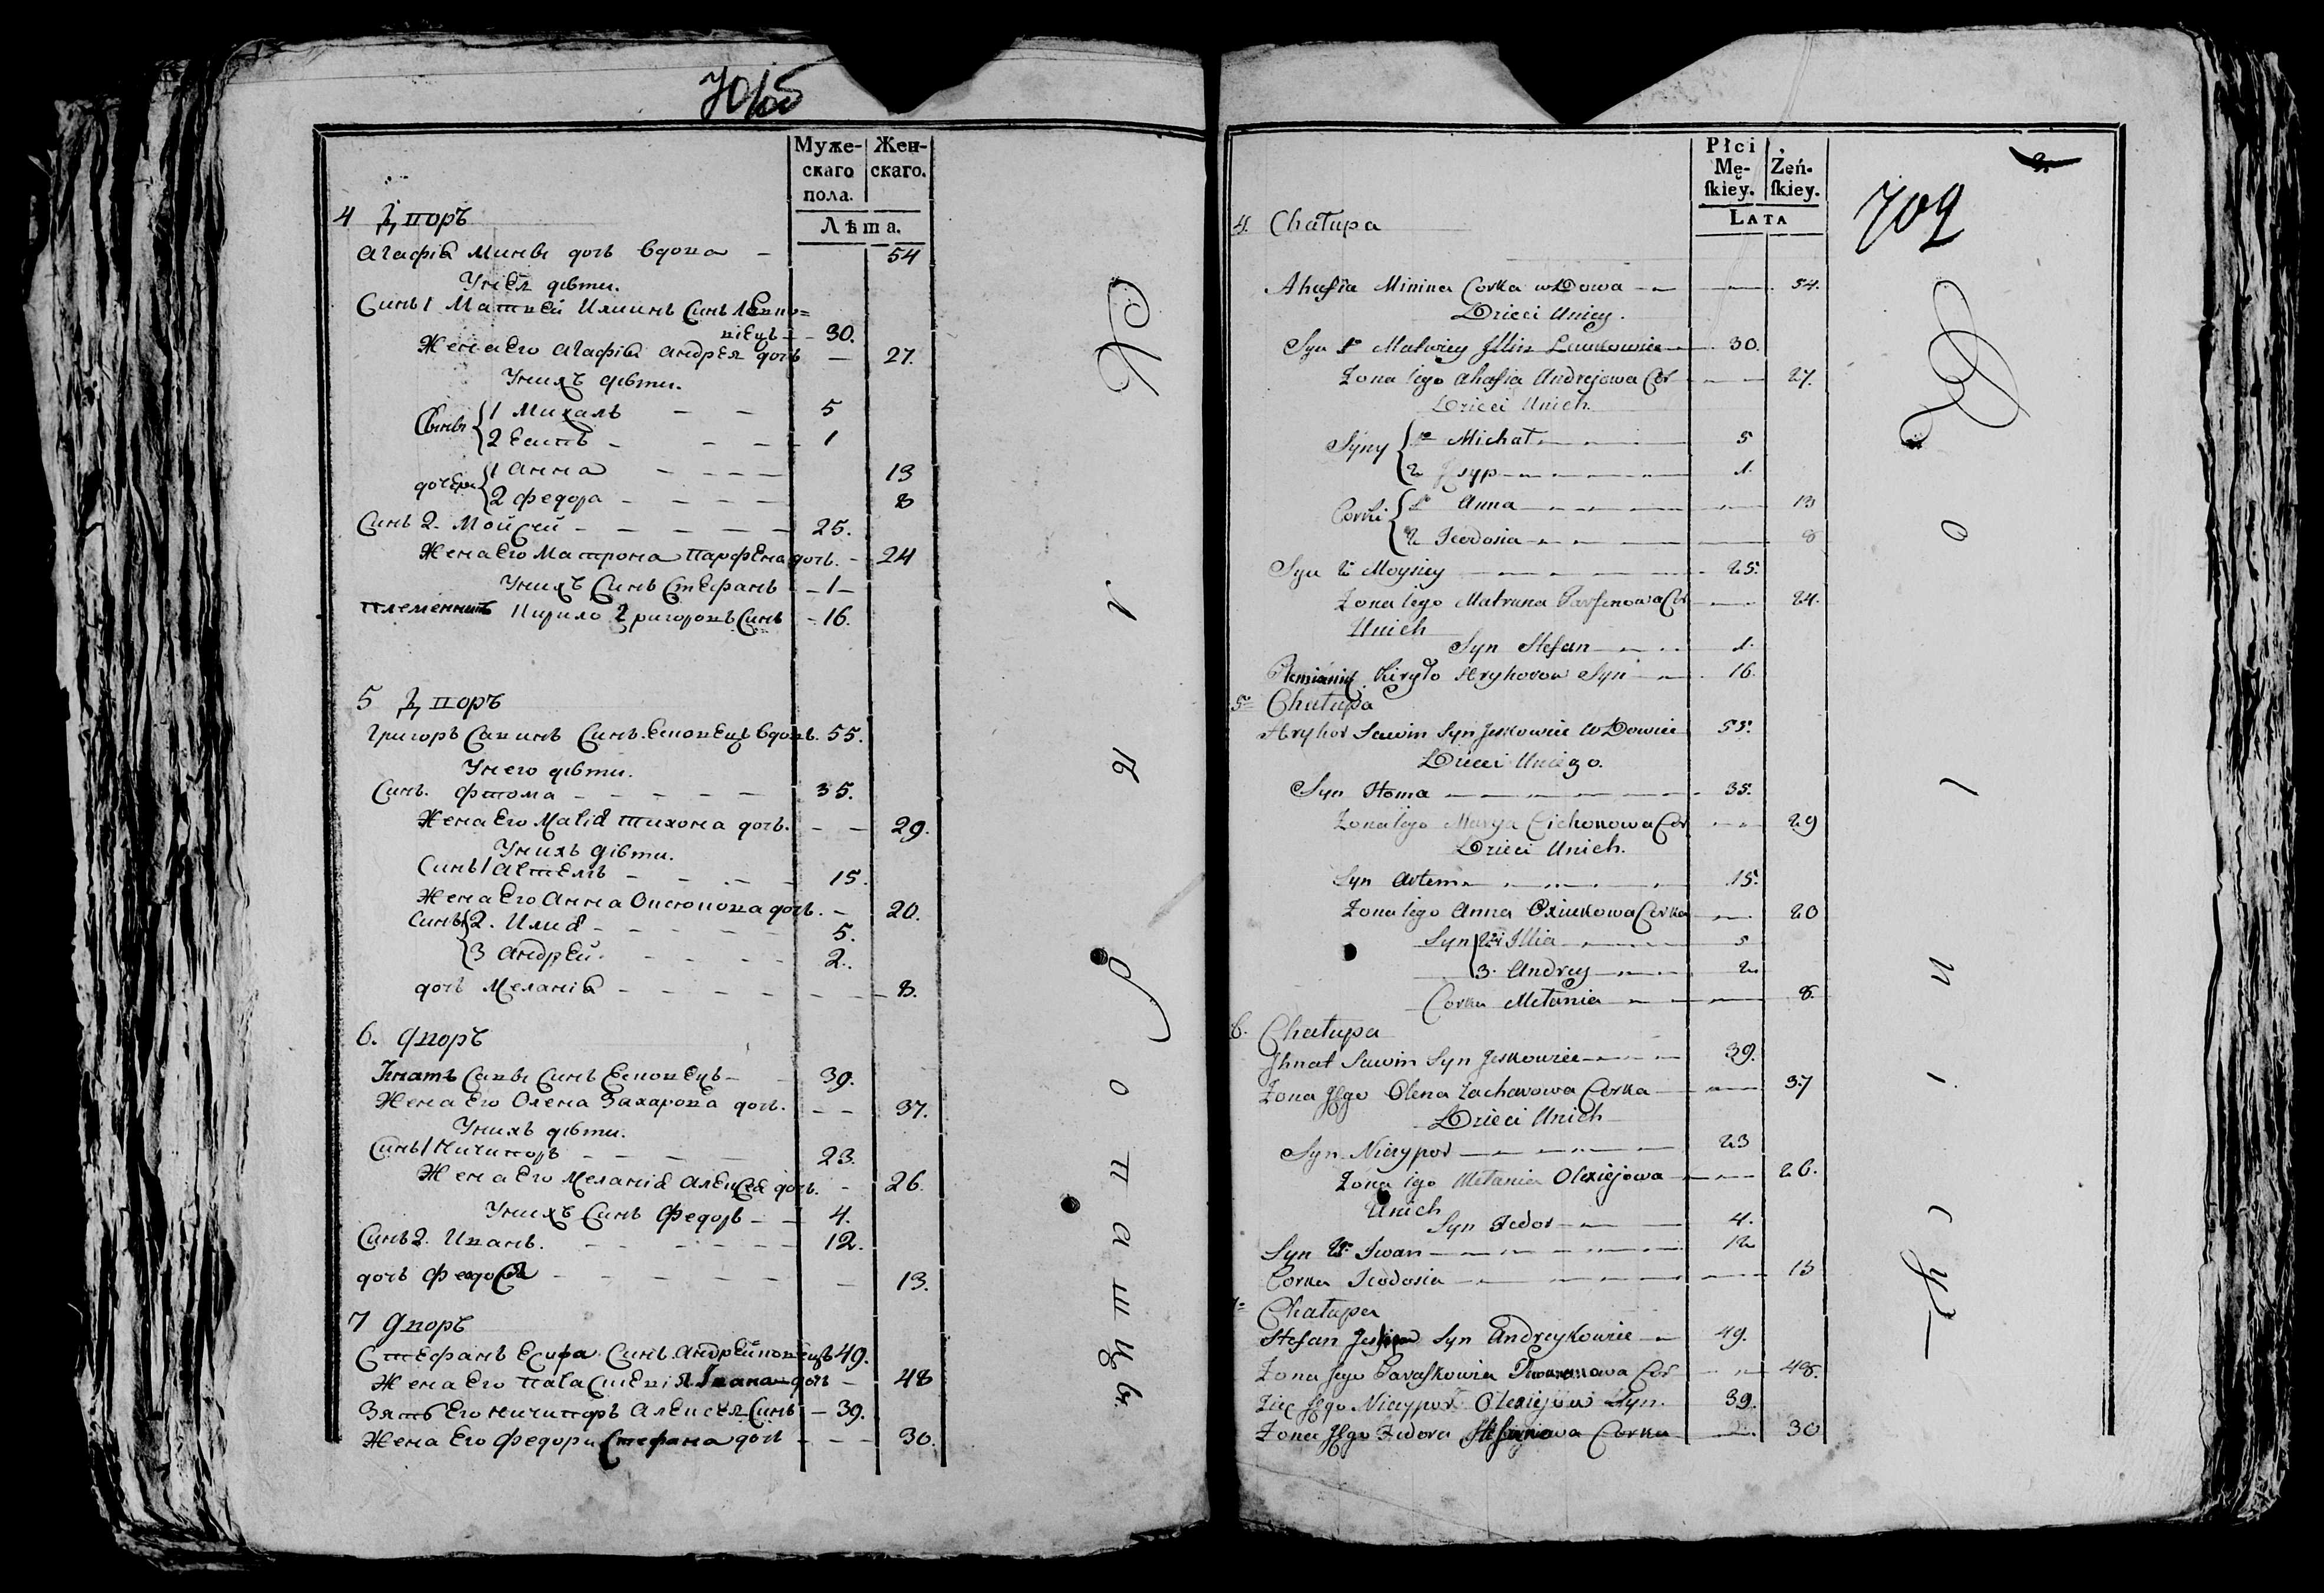 Муже-
скаго
пола.
Жен-
скаго.
Лѣта.
4 Дворъ
Агафіа Минѣ дочь вдова - 54
У неѧ дѣти.
Синъ 1 Матвей Илиинъ Синъ Левко=
вiецъ - 30.
Жена Его Агафіа Андрея дочь - 27.
У нихъ дѣти.
Синъ 1 Михалъ - - 5
2 Есипъ - - - 1
дочери 1 Анна - - - - 13
2 Федора - - - - 8
Синъ 2. Мойсей - - - - - 25.
Жена Его Матрона Парфена дочь. - 24
У нихъ Синъ Стефанъ - 1 -
племенникъ Кирило Григоровъ Синъ - 16.
5 Дворъ
Григоръ Савинъ Синъ. Есковецъ вдовъ. 55.
У него дѣти.
Синъ. Фтома - - - - - 35.
Жена Его Тихона дочь. - - 29.
У нихъ дѣти.
Синъ 1 - - - - 15.
Жена Его Анна дочь. - 20.
Синъ 2. Илиа - - - - - 5.
3 Андрей. - - - - 2.
дочь Меланіа - - - - - - - 8.
6. дворъ
Игнатъ Савѣ Синъ Есковецъ - 39.
Жена Его Олена Захарова дочь. - - 37.
У нихъ дѣти.
Синъ 1 Ничипоръ - - - - 23.
Жена Его Меланіа Алексеа дочь. - 26.
У нихъ Синъ Федоръ - - 4.
Синъ 2. Иванъ. - - - - - - 12.
дочь - - - - - - - 13.
7 дворъ
Стефанъ Есифа Синъ. Андрейковецъ 49.
Жена Его Ивана дочь - 48
Зять Его Ничипоръ Алексея Синъ - 39.
Жена Его Федора Стефана дочь - - - 30.
Płci
Mę-
ſkiey.
Żeń-
ſkiey.
LATA
709
4. Chałupa
Ahafia Minina Corka wDowa - 54.
Dzieci Uniey.
Syn 1o Matwiey Illin Lewkowiec 30.
Zona iego Ahafia Andrejowa Cor 27.
Dzieci Unich.
Syny 1o Michał 5
2 Jsyp 1.
Corki 1o Anna 13
2 Teodosia 8
Syn 2o Moysiey 25.
Zona iego Matruna Parfenowa Cor 24.
Unich
Syn Stefan 1.
Plemianik Kiryło Hryhorow Syn 16.
5o Chałupa
Hryhor Sawin Syn Jeskowiec WDowiec 55.
Dzieci Uniego.
Syn Homa 35.
Zona iego Marya Cichonowa Cor 29
Dzieci Unich.
Syn Artem 15.
Zona iego Anna Corka 20
Syn 2i Illia 5
3. Andrey 2.
Corka Mełania 8.
6. Chałupa
Jhnat Sawin Syn Jeskowiec 39.
Zona Jego Olena Zacharowa Corka 37
Dzieci Unich
Syn Niczypor 23
Zona iego Mełania Olexiejowa 26.
Unich
Syn Fedor 4.
Syn 2o Iwan 12
Corka Teodosia 13
7o Chałupa
Stefan Syn Andreykowiec 49.
Zona Jego Paraſkowia Cor 48.
Zięć Jego Niczypor Olexiejow Syn. 39.
Zona Jego Fedora Stefanowa Corka 30